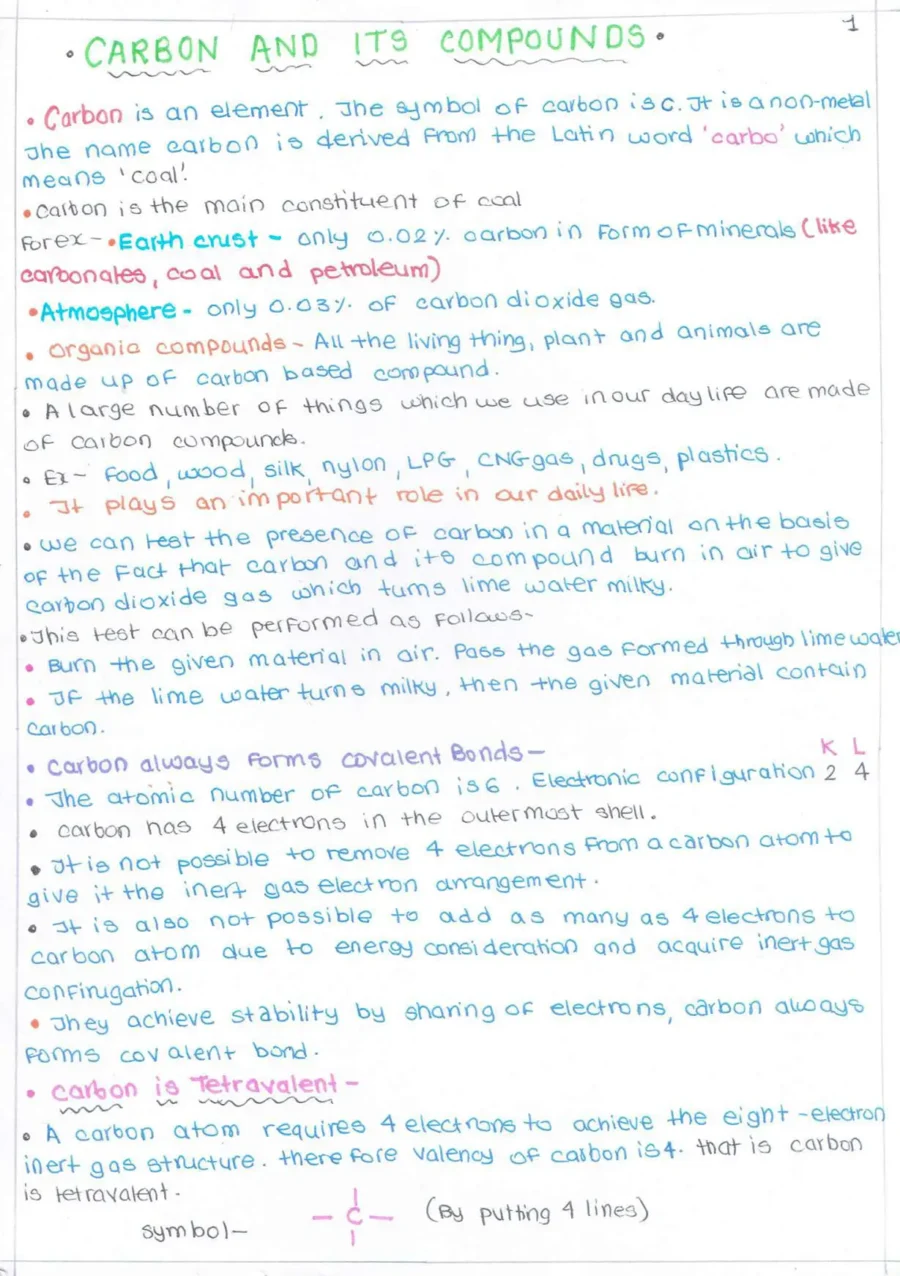 1
• CARBON AND ITS COMPOUNDS •
• Carbon is an element. The symbol of carbon is C. It is a non-metal
The name carbon is derived from the Latin word 'carbo' which
means 'coal'.
• Carbon is the main constituent of coal
For ex - • Earth crust - only 0.02% carbon in form of minerals (like
carbonates, coal and petroleum)
• Atmosphere - only 0.03% of carbon dioxide gas.
• Organic compounds - All the living thing, plant and animals are
made up of carbon based compound.
• A large number of things which we use in our day life are made
of carbon compounds.
• Ex - Food, wood, silk, nylon, LPG, CNG gas, drugs, plastics.
• It plays an important role in our daily life.
• we can test the presence of carbon in a material on the basis
of the fact that carbon and its compound burn in air to give
carbon dioxide gas which turns lime water milky.
• This test can be performed as follows-
• Burn the given material in air. Pass the gas formed through lime water
• If the lime water turns milky, then the given material contain
carbon.
• Carbon always forms covalent Bonds -
K L
• The atomic number of carbon is 6. Electronic configuration 2 4
• carbon has 4 electrons in the outermost shell.
• It is not possible to remove 4 electrons from a carbon atom to
give it the inert gas electron arrangement.
• It is also not possible to add as many as 4 electrons to
carbon atom due to energy consideration and acquire inert gas
confirugation.
• They achieve stability by sharing of electrons, carbon always
forms covalent bond.
• Carbon is Tetravalent -
• A carbon atom requires 4 electrons to achieve the eight-electron
inert gas structure. therefore valency of carbon is 4. that is carbon
is tetravalent.
symbol - C (By putting 4 lines)